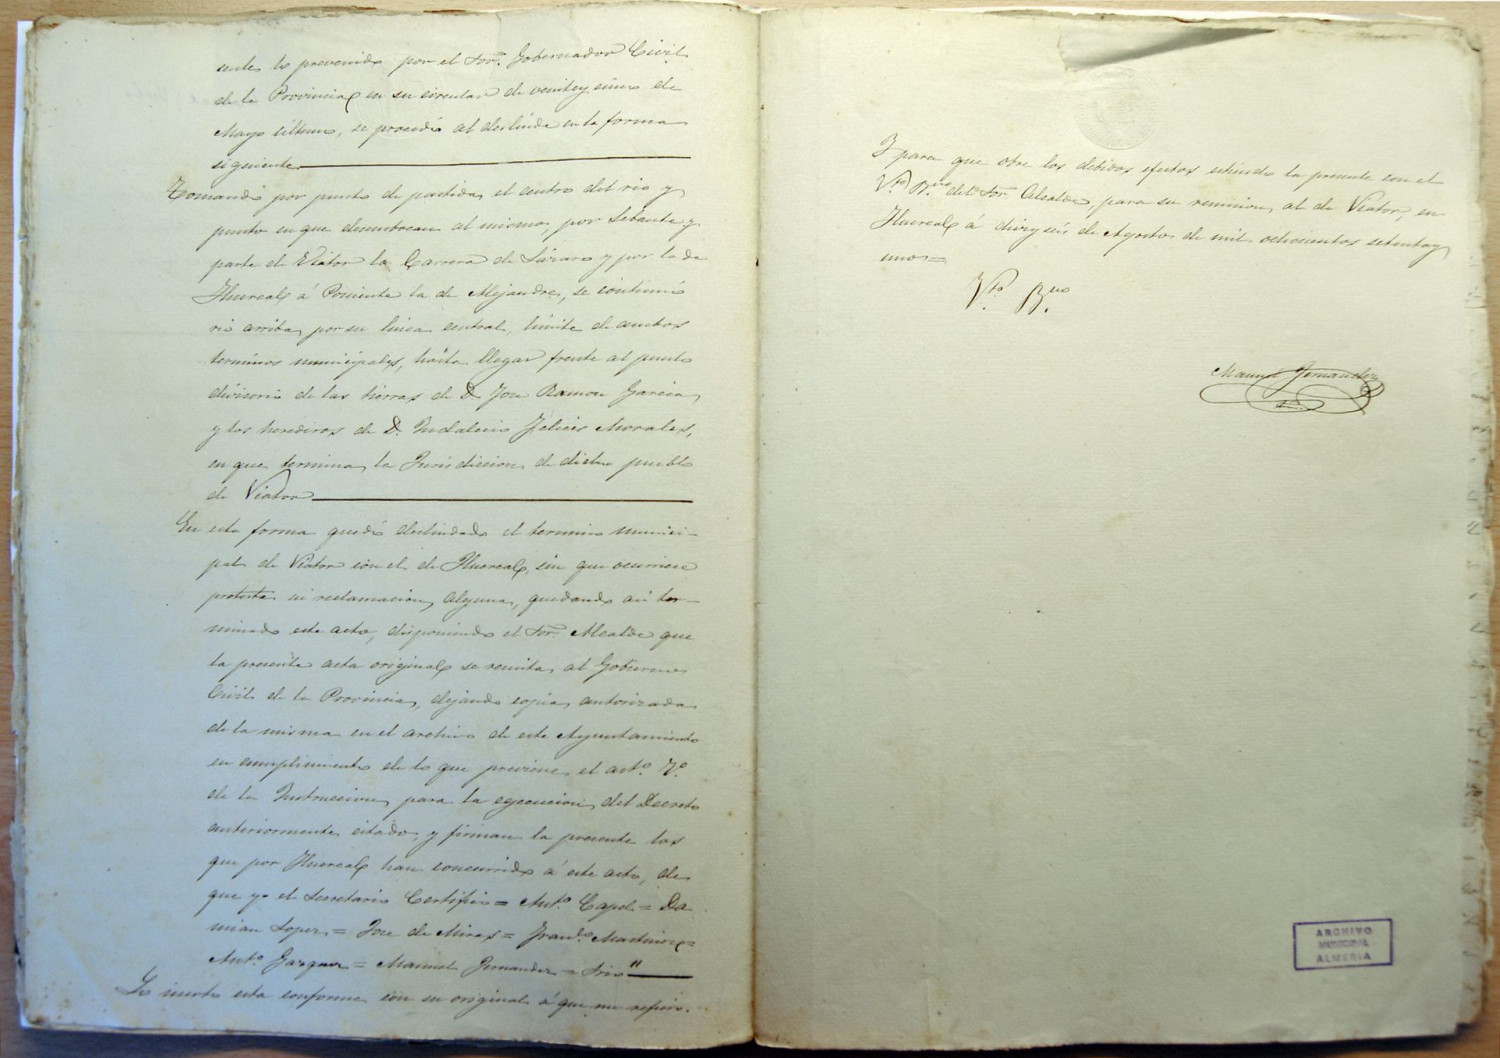 sente lo prevenido por el Sor. Gobernador Civil
de la Provincia en su circular de veinte y cinco de
Mayo último, se procedió al deslinde en la forma
siguiente
Tomando por punto de partida el centro del rio y
punto en que desembocan al mismo, por Lebante y
parte de Viator la Carrera de Lázaro y por la de
Huercal á Poniente la de Alejandro, se continuó
rio arriba, por su linea central, límite de ambos
terminos municipales, hasta llegar frente al punto
divisorio de las tierras de D. Jose Ramon Garcia,
y los herederos de D. Indalecio Felices Morales,
en que termina la Jurisdiccion de dicho pueblo
de Viator
En esta forma quedó deslindado el termino munici-
pal de Viator con el de Huercal, sin que ocurriese
protesta ni reclamacion alguna, quedando asi ter-
minado este acto, disponiendo el Sor. Alcalde que
la presente acta original se remita al Gobierno
Civil de la Provincia, dejando copia autorizada
de la misma en el archivo de este Ayuntamiento
en cumplimiento de lo que previene el arto. 7o.
de la Instruccion para la ejecucion del Decreto
anteriormente citado, y firman la presente los
que por Huercal han concurrido á este acto, de
que yo el Secretario Certifico = Anto. Capel = Da
mian Lopez = Jose de Miras = Frando. Martinez =
Anto. = Manuel Fernandez = Srio"
Lo inserto esta conforme con su original á que me refiero.
Y para que obre los debidos efectos estiendo la presente con el
Vto. Bno. del Sor. Alcalde, para su remision al de Viator, en
Huercal á diez y seis de Agosto de mil ochocientos setenta y
uno =
Vto. Bno.
Manuel Fernandez
ARCHIVO
MUNICIPAL
ALMERIA